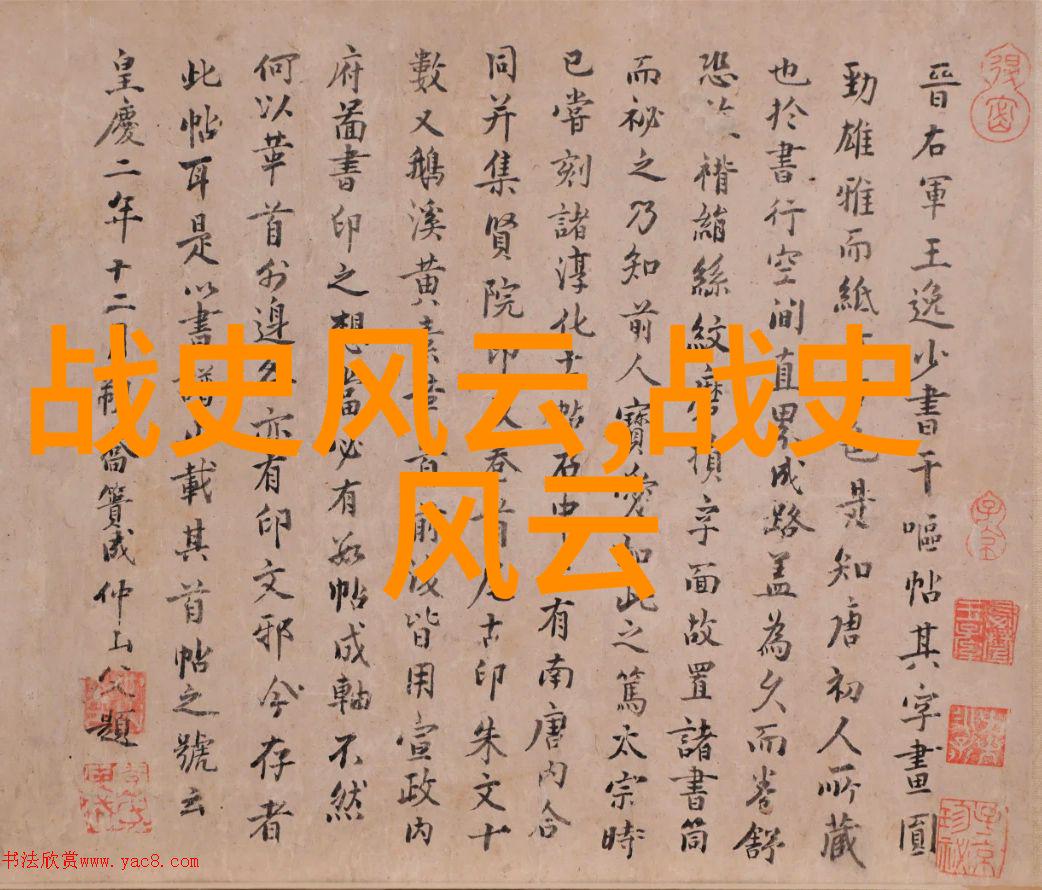 晉右軍王逸少書千嘔帖其字畫圓
勁雄雅而紙是知唐初人所藏
也於書行空間直界成路盖為久而卷舒
恐褙絲紋磨損字面故置諸書筒
而祕之乃知前人寶愛如此之篤太宗時
已嘗刻諸淳化帖有南唐内合
同并集賢院印古印朱文十
數又鵝溪黄皆用宣政内
府啚書印之想當必有如帖成軸不然
何以華首邊亦有印文邪今存者
此帖耳是以書載其首帖之號云
皇慶二年十二月簣成仲山父題
战史风云,战史
风云
书法欣赏www.yac8.com